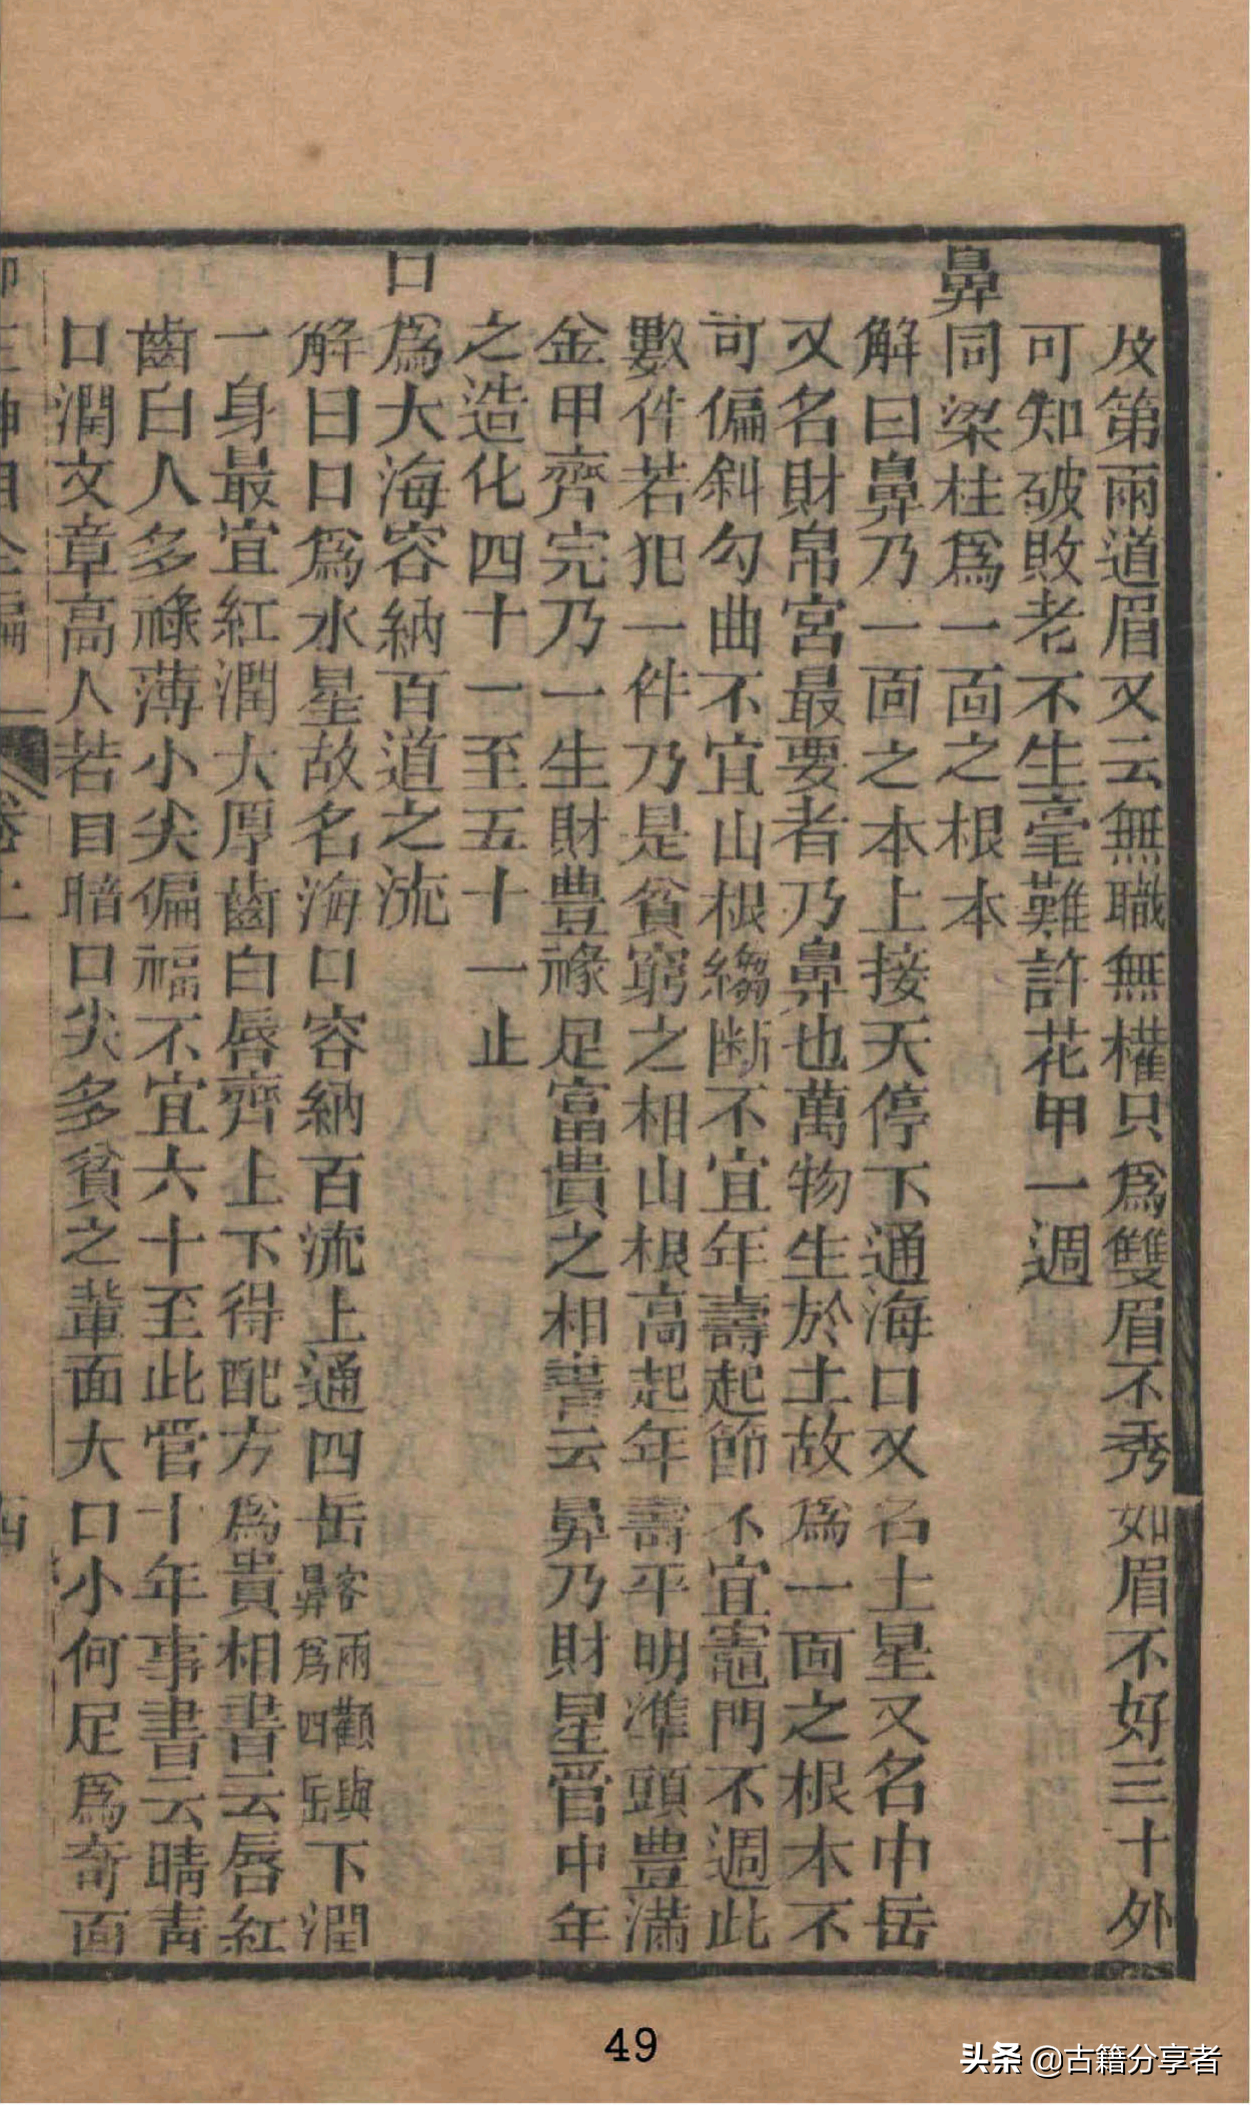 及第兩道眉又云無職無權只為雙眉不秀如眉不好三十外
可知破敗老不生毫難許花甲一週
鼻同梁柱為一面之根本
解曰鼻乃一面之本上接天停下通海口又名土星又名中岳
又名財帛宮最要者乃鼻也萬物生於土故為一面之根本不
可偏斜勾曲不宜山根縐断不宜年壽起節不宜竈門不週此
數件若犯一件乃是貧窮之相山根高起年壽平明準頭豊滿
金甲齊完乃一生財豊祿足富貴之相書云鼻乃財星管中年
之造化四十一至五十一止
口為大海容納百道之流
解曰口為水星故名海口容納百流上通四岳客兩顴與鼻為四岳下潤
一身最宜紅潤大厚齒白唇齊上下得配方為貴相書云唇紅
齒白人多祿薄小尖偏福不宜六十至此管十年事書云睛青
口潤文章高人若目暗口尖多貧之輩面大口小何足為奇面
49
头条 @古籍分享者